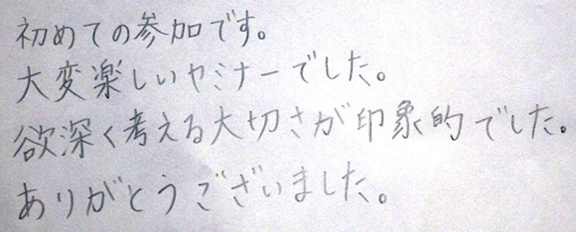 初めての参加です。
大変楽しいセミナーでした。
欲深く考える大切さが印象的でした。
ありがとうございました。